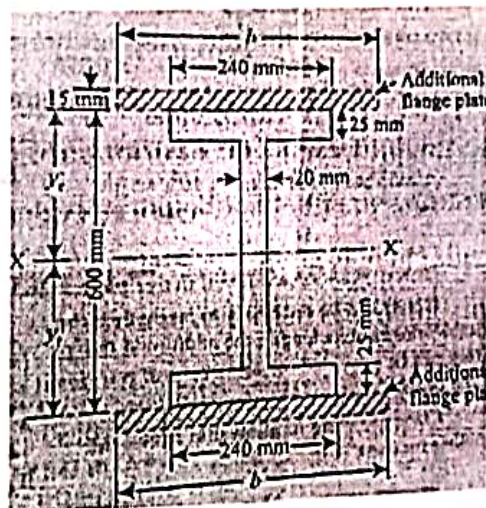 b
240 mm
Additional
flange plat
15 mm
25 mm
y_c
20 mm
X
X
600 mm
y_t
25 mm
Additional
flange pla
240 mm
b